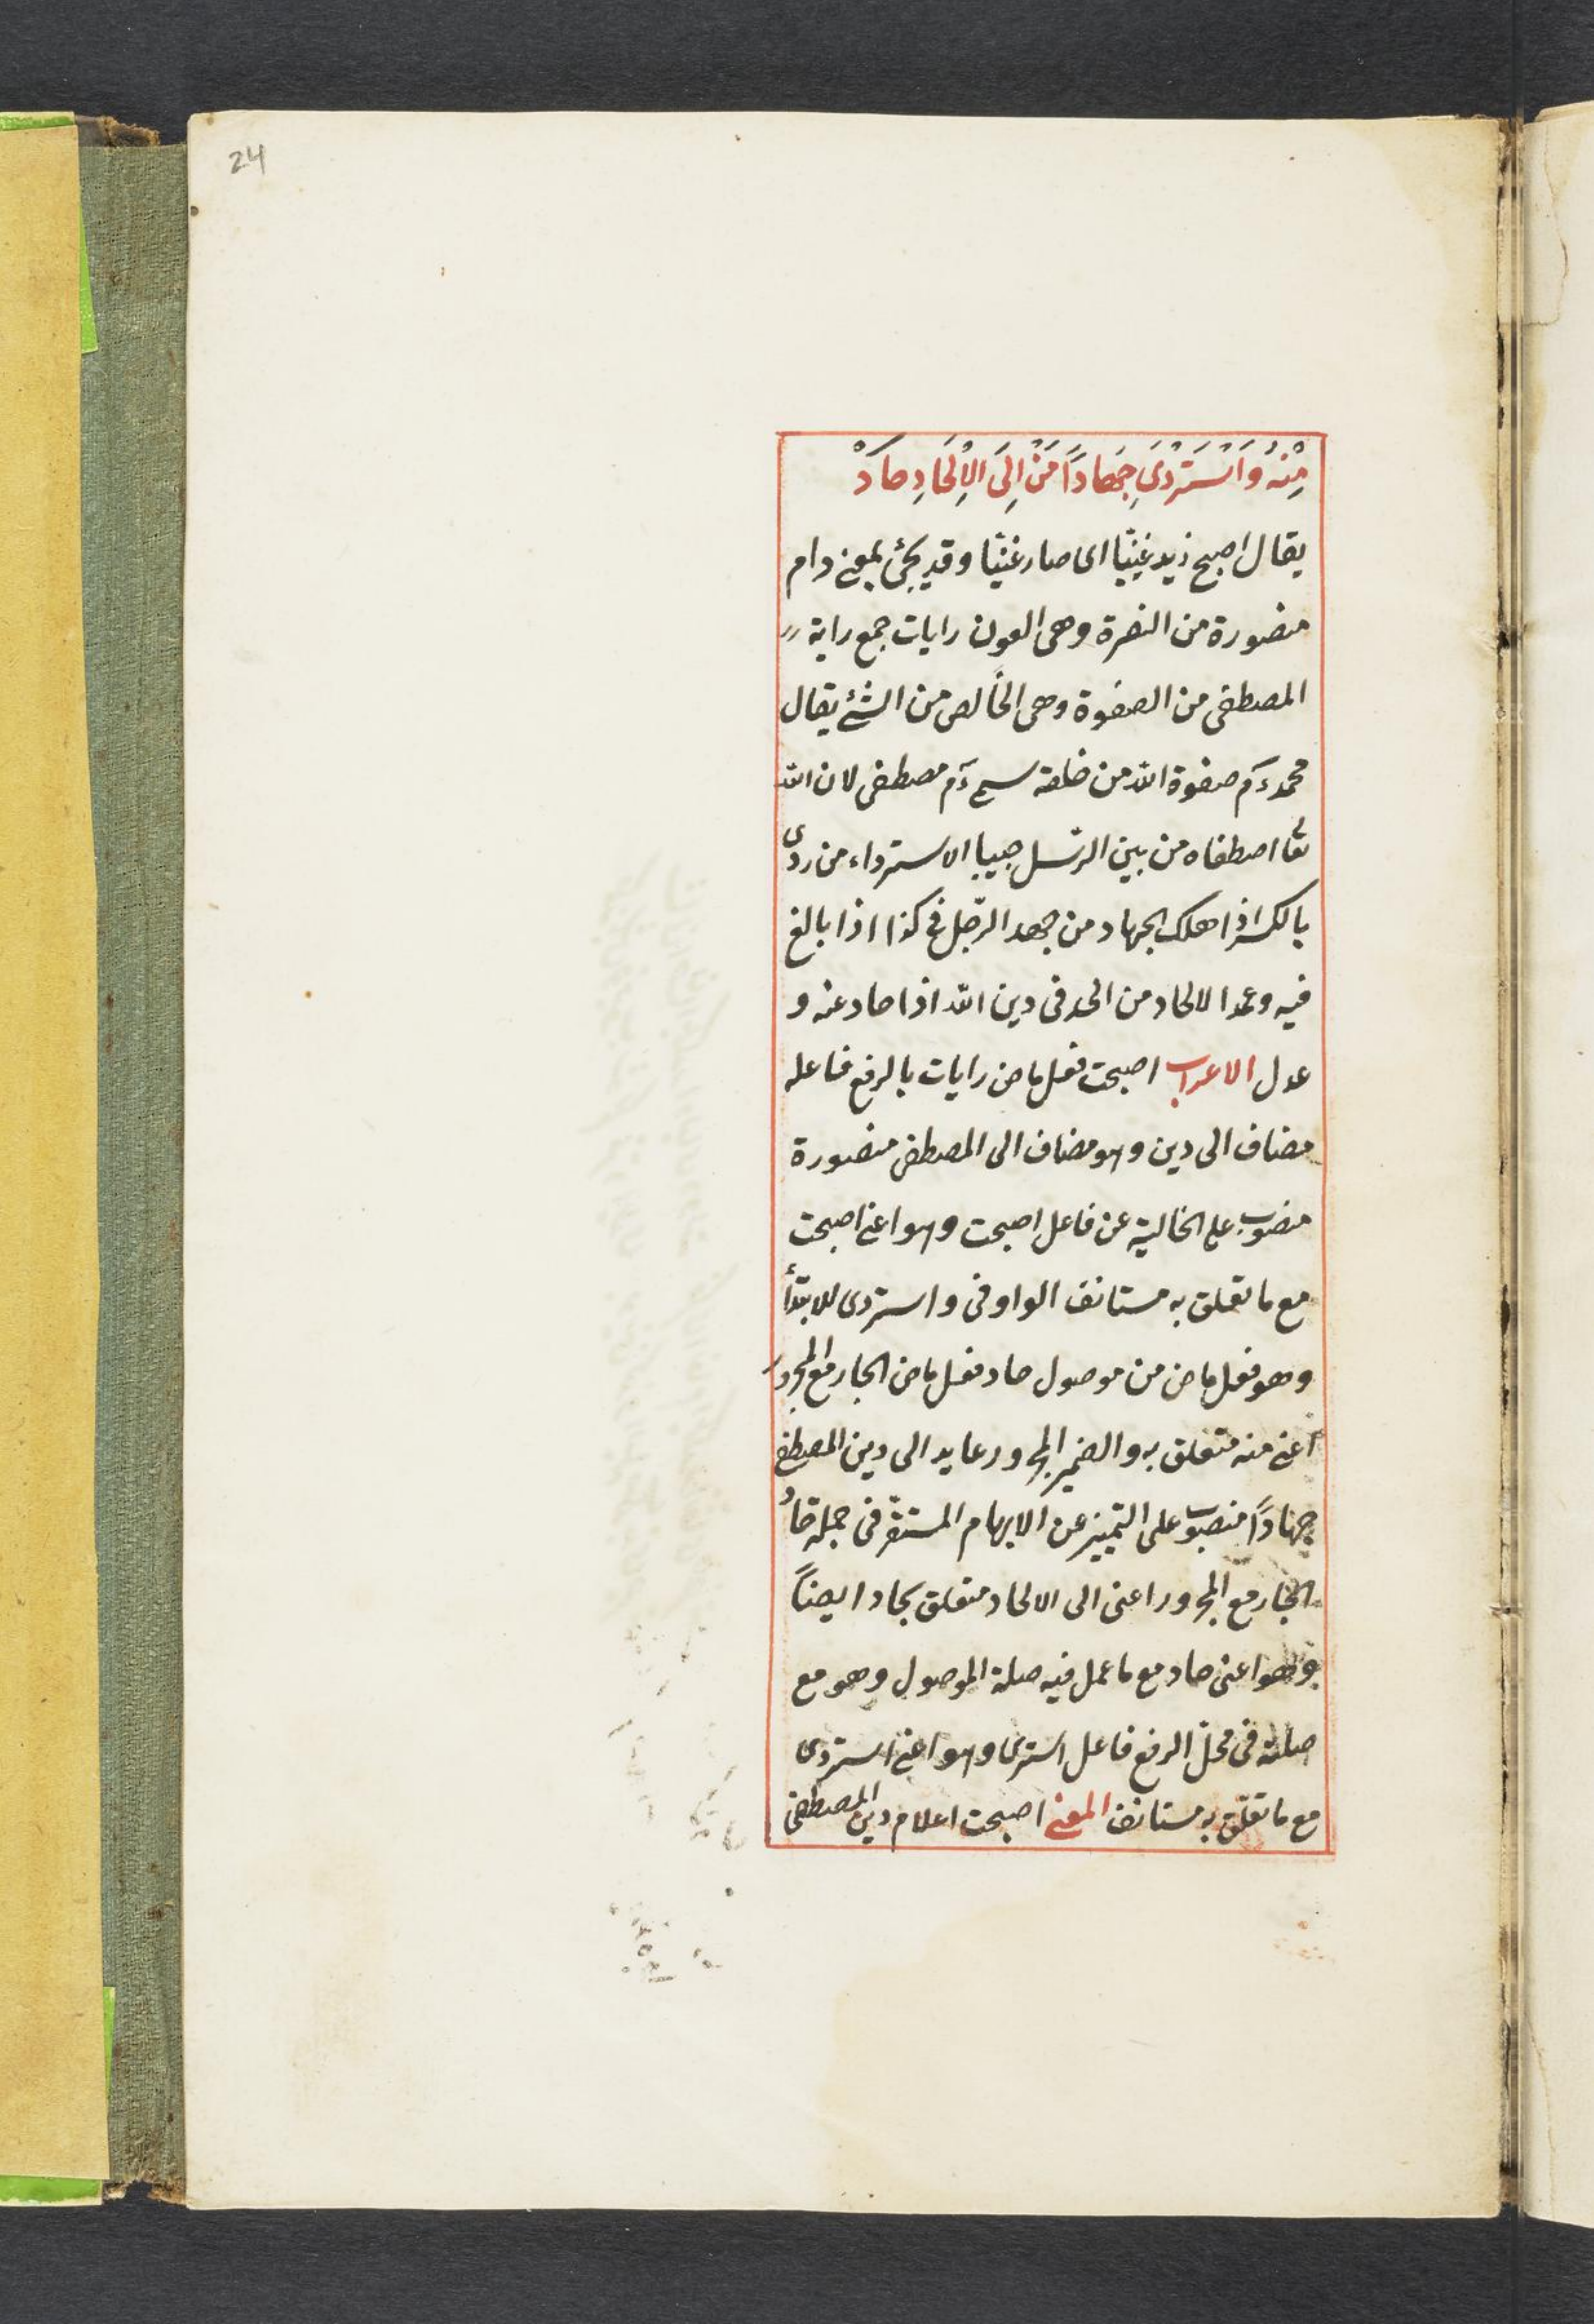 24
مِنْهُ وَاسْتَرْدَى جِهَادًا مَنْ اِلَى الْاِلْحَادِ حَادْ
يقال اصبح زيد غنيّا اى صار غنيّا وقد يجئ بمعنى دام
منصورة من النصرة وهى العون رايات جمع راية
المصطفى من الصفوة وهى الخالص من الشئ يقال
محمد صفوة الله من خلقه مصطفى لان الله
تعا اصطفاه من بين الرّسل الاسترداء من ردى
بالكسر اذا هلك الجهاد من جهد الرّجل فى كذا اذا بالغ
فيه الالحاد من الحد فى دين الله اذا حاد عنه و
عدل الاعراب اصبحت فعل ماض رايات بالرفع فاعله
مضاف الى دين وهو مضاف الى المصطفى منصورة
منصوب على الحالية عن فاعل اصبحت وهو اعنى اصبحت
مع ما تعلق به مستانف الواو فى واستردى للابتدأ
وهو فعل ماض من موصول حاد فعل ماض الجار مع المجرور
اعنى منه متعلق به والضمير المجرور عايد الى دين المصطفى
جهادًا منصوب على التمييز عن الابهام المستقرّ فى جملة حاد
الجار مع المجرور اعنى الى الالحاد متعلق بحاد ايضاً
وهو اعنى حاد مع ما عمل فيه صلة الموصول وهو مع
صلته فى محلّ الرفع فاعل استردى وهو اعنى استردى
مع ما تعلّق به مستانف المعنى اصبحت اعلام دين المصطفى